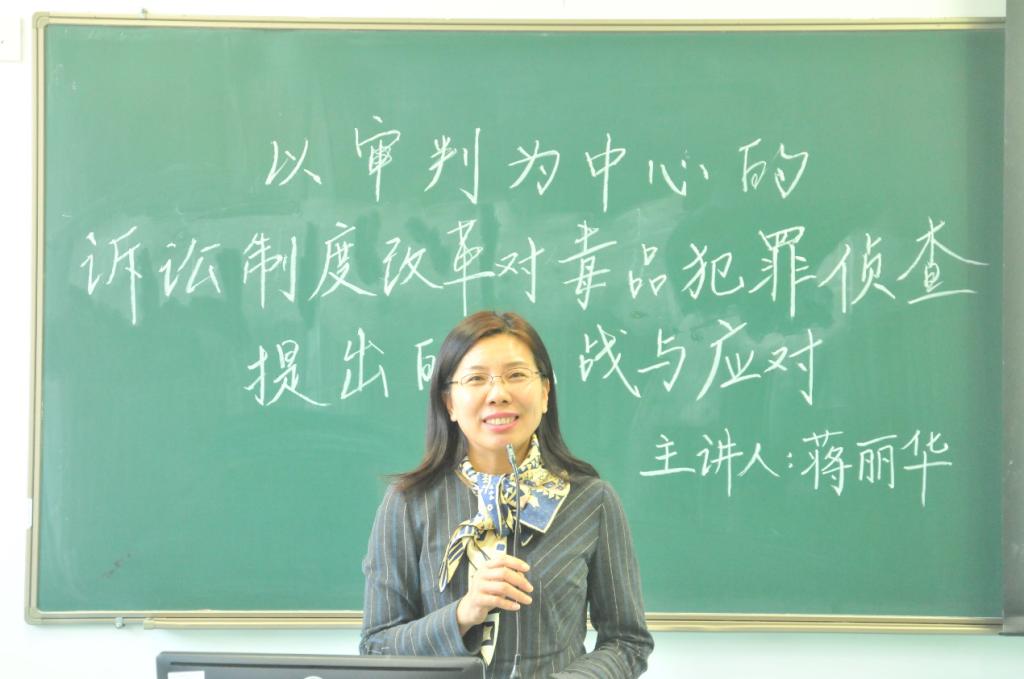 以审判为中心的
诉讼制度改革对毒品犯罪侦查
提出的 战与应对
主讲人:蒋丽华